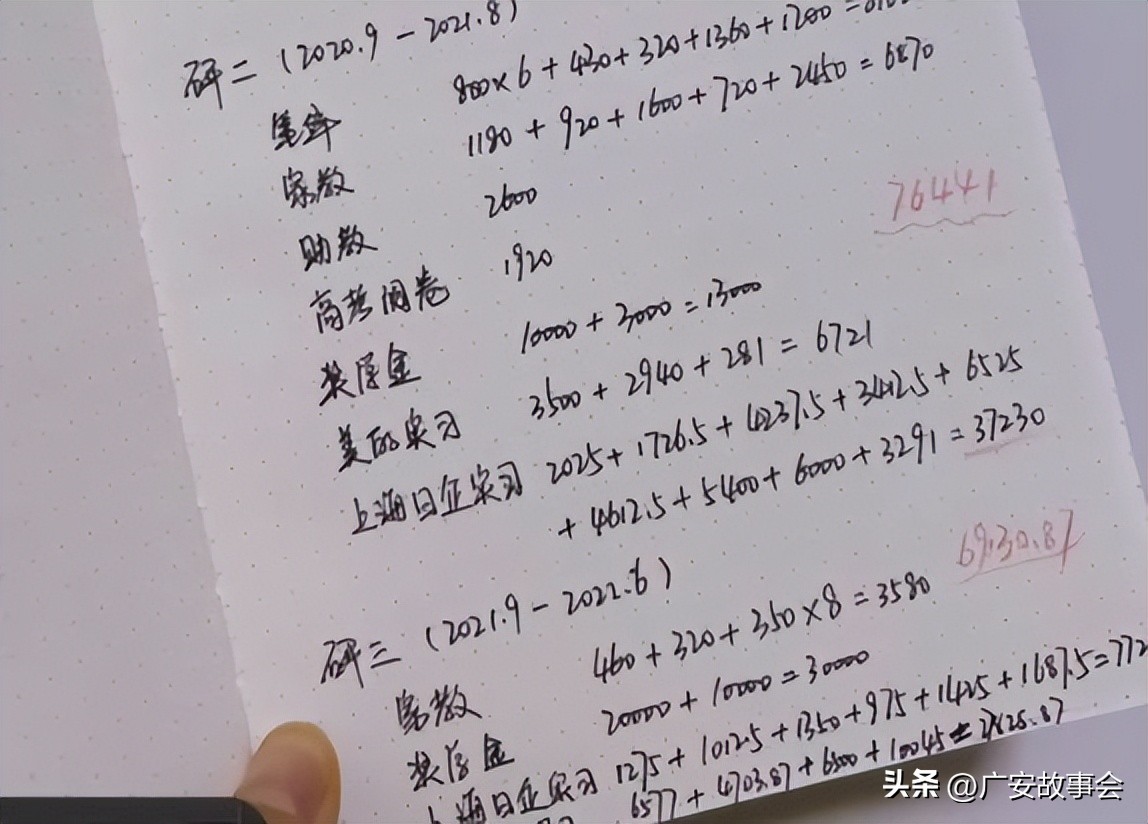 研二（2020.9 - 2021.8）
笔译 800×6+430+320+1360+1200=
家教 1180+920+1600+720+2450=6870
助教 2600
76441
高考阅卷 1920
奖学金 10000+3000=13000
美的实习 3500+2940+281=6721
上海日企实习 2025+1726.5+4237.5+3412.5+6525
+4612.5+5400+6000+3291=37230
69130.87
研三（2021.9-2022.6）
家教 460+320+350×8=3580
奖学金 20000+10000=30000
上海日企实习 1275+1012.5+1350+975+1425+1687.5=772
6577+4703.87+6500+10045=
头条 @广安故事会